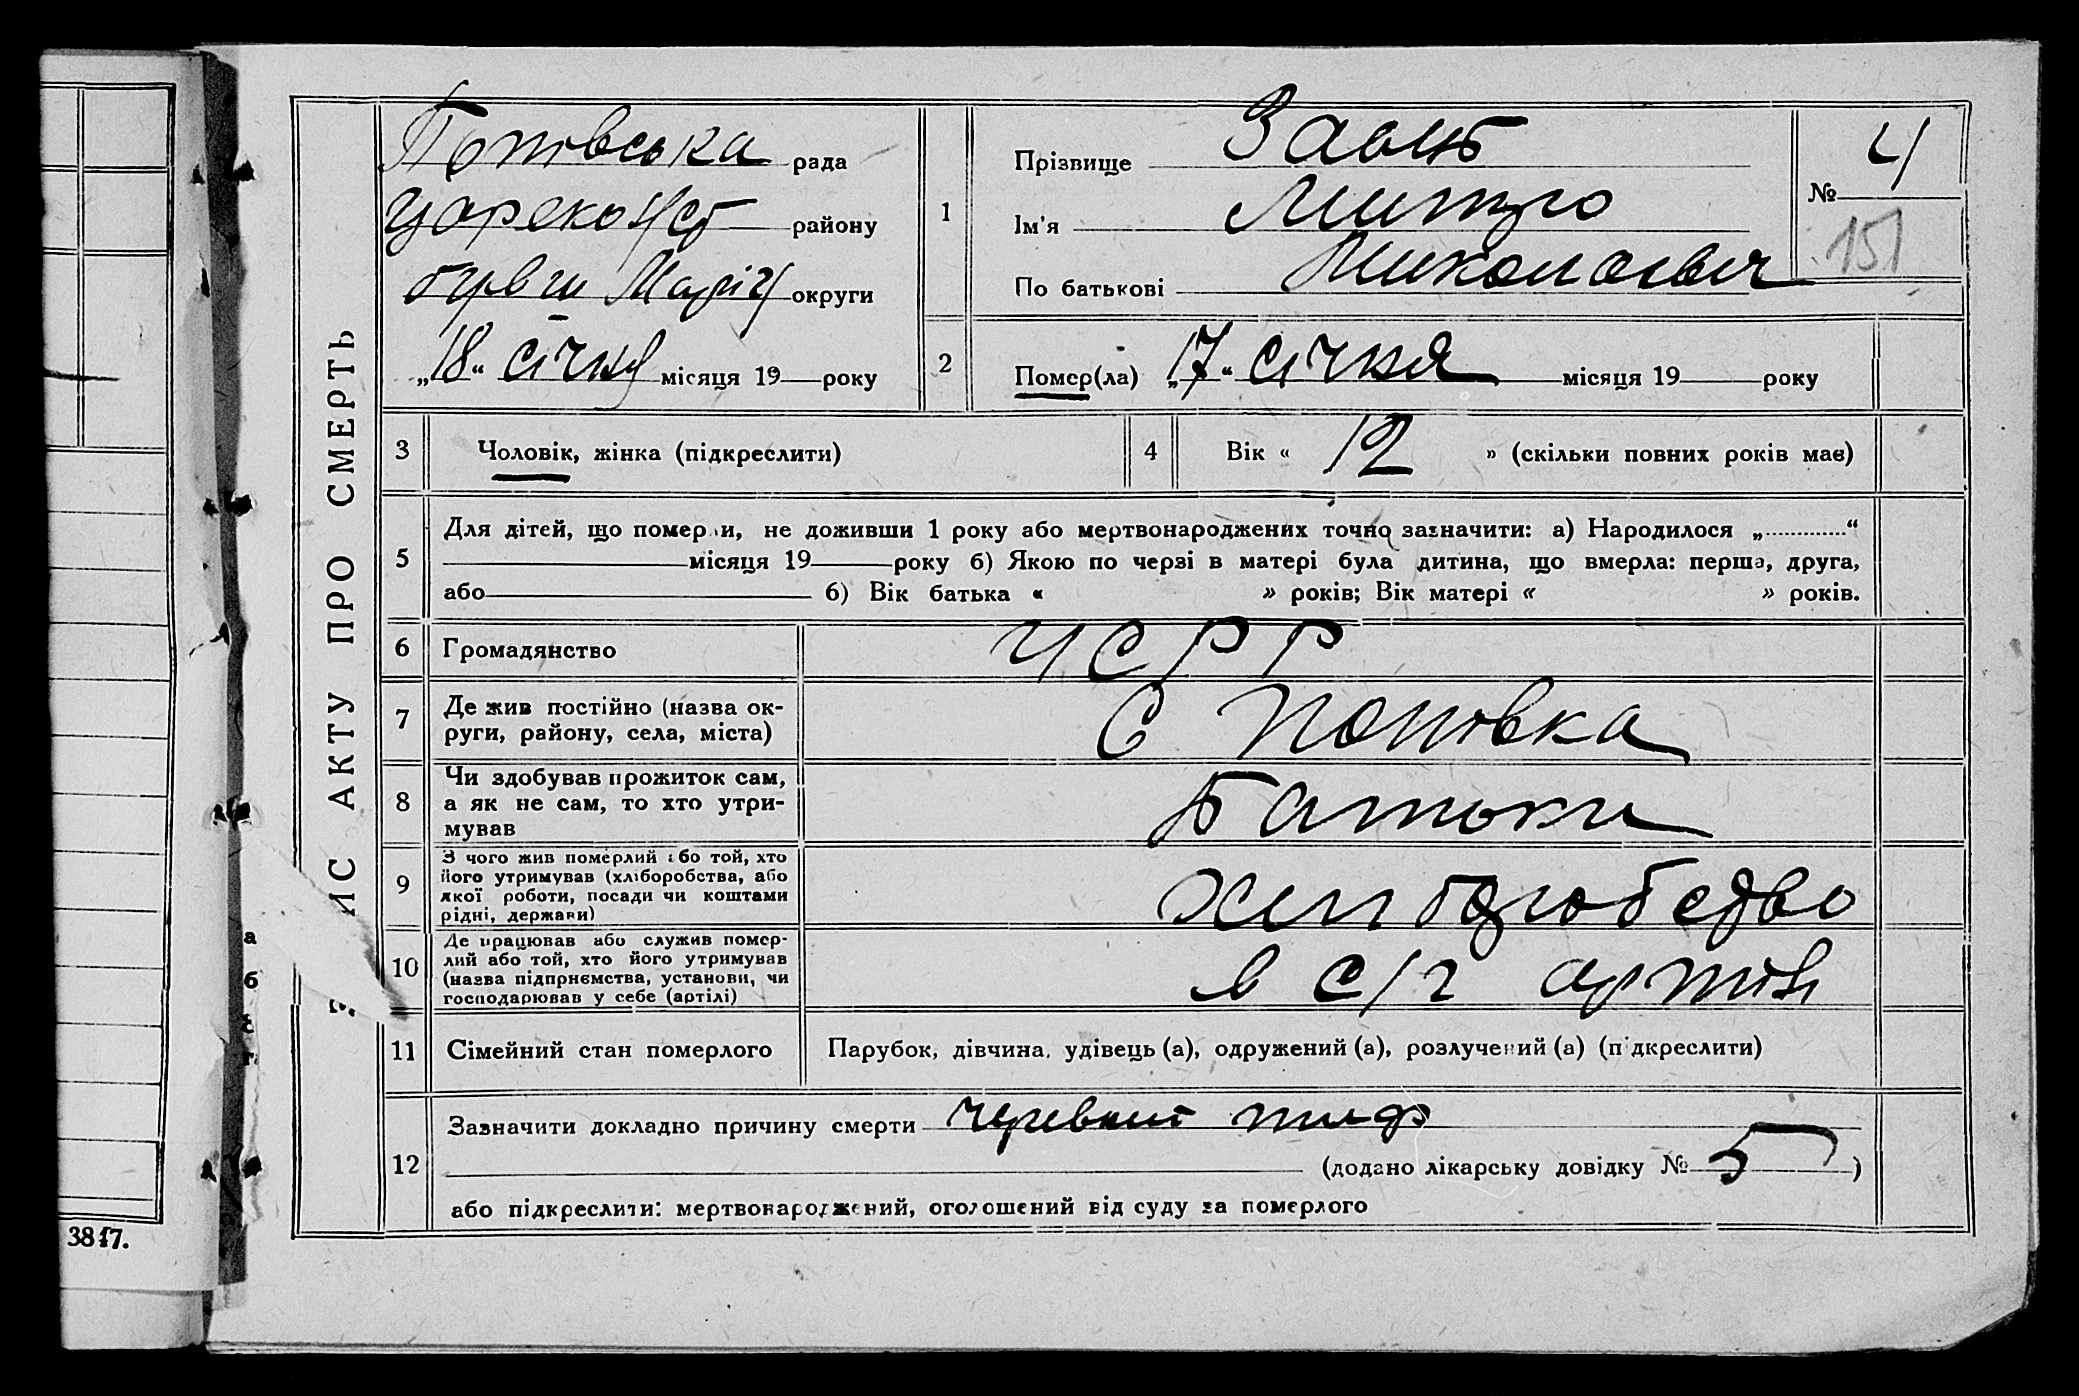 ИС АКТУ ПРО СМЕРТЬ
Попівська рада
району
бувш Маріу округи
„18“ січня місяця 19 року
1
Прізвище Заяць
Ім'я Митро
По батькові Миколаєвич
№ 4
151
2
Помер(ла) „17“ січня місяця 19 року
3 Чоловік, жінка (підкреслити)
4 Вік « 12 » (скільки повних років має)
5
Для дітей, що померли, не доживши 1 року або мертвонароджених точно зазначити: а) Народилося „.............“
місяця 19 року б) Якою по черзі в матері була дитина, що вмерла: перша, друга,
або б) Вік батька « » років; Вік матері « » років.
6 Громадянство УСРР
7 Де жив постійно (назва ок-
руги, району, села, міста)
С Попівка
8 Чи здобував прожиток сам,
а як не сам, то хто утри-
мував
Батьки
9 З чого жив померлий або той, хто
його утримував (хліборобства, або
якої роботи, посади чи коштами
рідні, держави)
хліборобство
10 Де працював або служив помер-
лий або той, хто його утримував
(назва підприємства, установи, чи
господарював у себе (артілі)
в с/г артілі
11 Сімейний стан померлого Парубок, дівчина, удівець (а), одружений (а), розлучений (а) (підкреслити)
12 Зазначити докладно причину смерти черевний тиф
(додано лікарську довідку № 5 )
або підкреслити: мертвонароджений, оголошений від суду за померлого
а
б
г
3847.